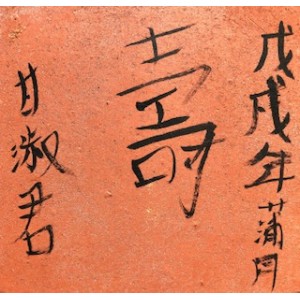 戊戌年蒲月
壽
甘淑君